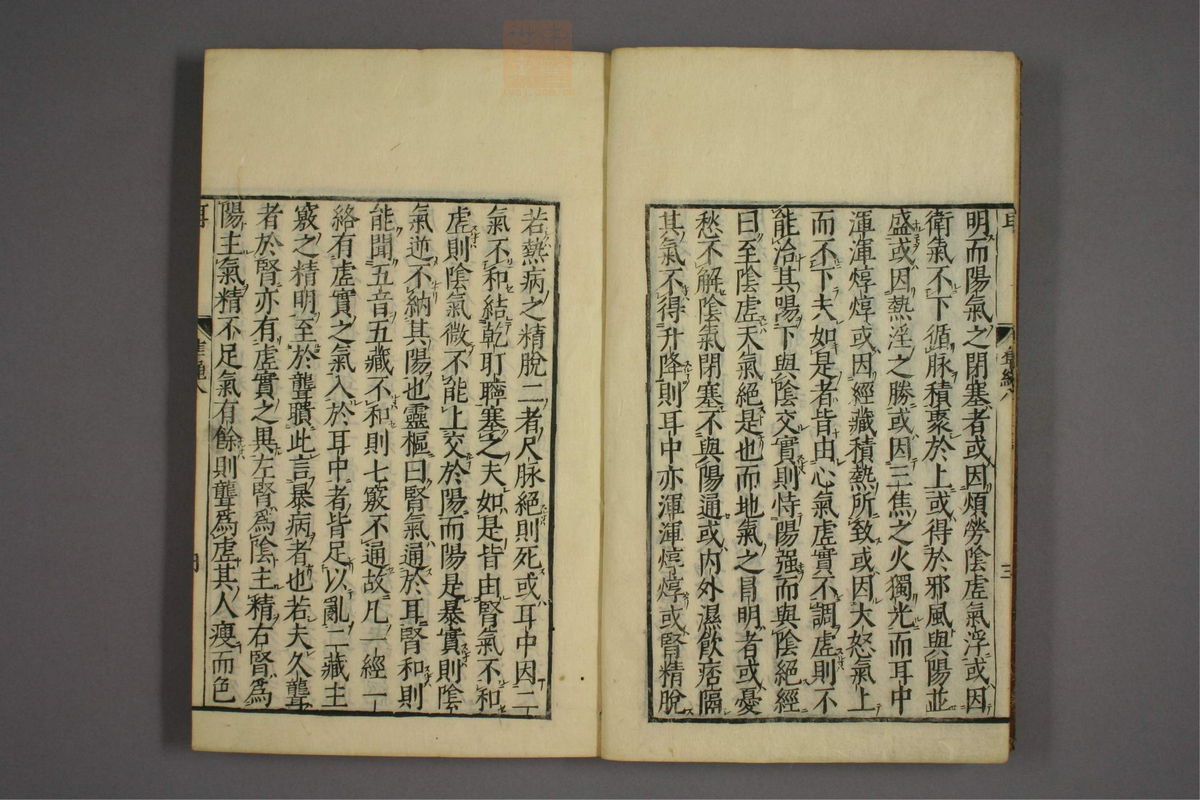 明而陽氣之閉塞者或因煩勞陰虛氣浮或因
衛氣不下循脉積聚於上或得於邪風與陽並
盛或因熱淫之勝或因三焦之火獨光而耳中
渾渾焞焞或因經藏積熱所致或因大怒氣上
而不下夫如是者皆由心氣虛實不調虛則不
能治其陽下與陰交實則恃陽强而與陰絕經
曰至陰虛天氣絕是也而地氣之冐明者或憂
愁不解陰氣閉塞不與陽通或內外濕飲痞隔
其氣不得升降則耳中亦渾渾焞焞或腎精脫
若熱病之精脫二者尺脉絕則死或耳中因
氣不和結乾耵聹塞之夫如是皆由腎氣不和
虛則陰氣微不能上交於陽而陽是暴實則陰
氣逆不納其陽也靈樞曰腎氣通於耳腎和則
能聞五音五藏不和則七竅不通故凡一經一
絡有虛實之氣入於耳中者皆足以亂二藏主
竅之精明至於聾聵此言暴病者也若夫久聾
者於腎亦有虛實之異左腎爲陰主精右腎爲
陽主氣精不足氣有餘則聾爲虛其人瘦而色